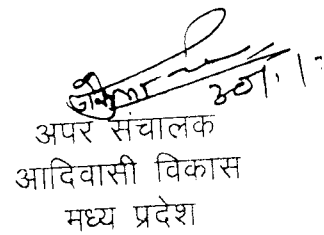 अपर संचालक
आदिवासी विकास
मध्य प्रदेश